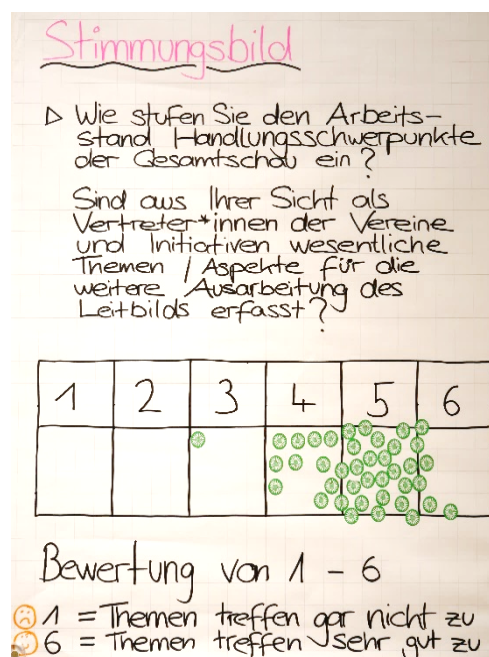 Stimmungsbild
▷ Wie stufen Sie den Arbeits-
stand Handlungsschwerpunkte
der Gesamtschau ein?
Sind aus Ihrer Sicht als
Vertreter*innen der Vereine
und Initiativen wesentliche
Themen / Aspekte für die
weitere Ausarbeitung des
Leitbilds erfasst?
1 2 3 4 5 6
Bewertung von 1 - 6
1 = Themen treffen gar nicht zu
6 = Themen treffen sehr gut zu